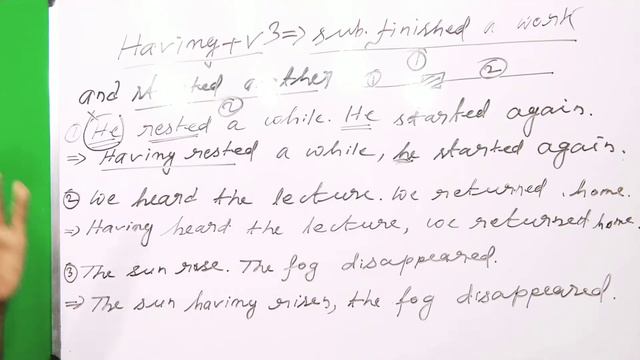 Having + V3 => sub. finished a work
and started another ① ① ②
① He rested a while. He started again. ②
=> Having rested a while, he started again.
② We heard the lecture. We returned home.
=> Having heard the lecture, we returned home.
③ The sun rise. The fog disappeared.
=> The sun having risen, the fog disappeared.